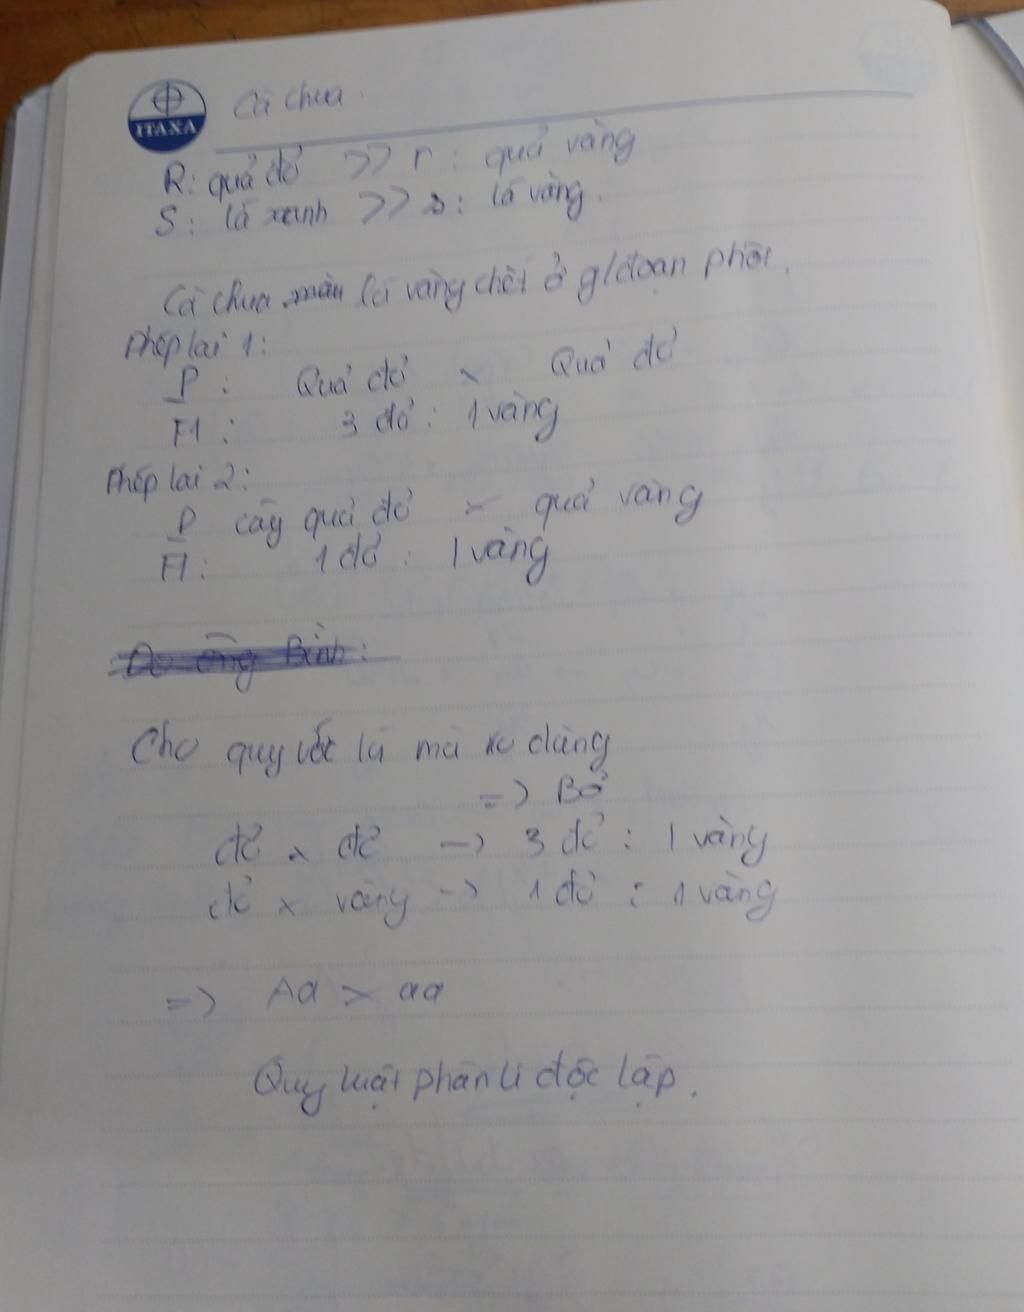 ITAXA
Cà chua.
R: quả đỏ >> r: quả vàng
S: lá xanh >> s: lá vàng.
Cà chua lá vàng chết ở g/đoạn phôi.
Phép lai 1:
P: Quả đỏ x Quả đỏ
F1: 3 đỏ: 1 vàng
Phép lai 2:
P cây quả đỏ x quả vàng
F1: 1 đỏ: 1 vàng
Cho quy ước lá mà ko dùng
=> Bỏ
đỏ x đỏ -> 3 đỏ: 1 vàng
đỏ x vàng -> 1 đỏ: 1 vàng
=> Aa x aa
Quy luật phân li độc lập.